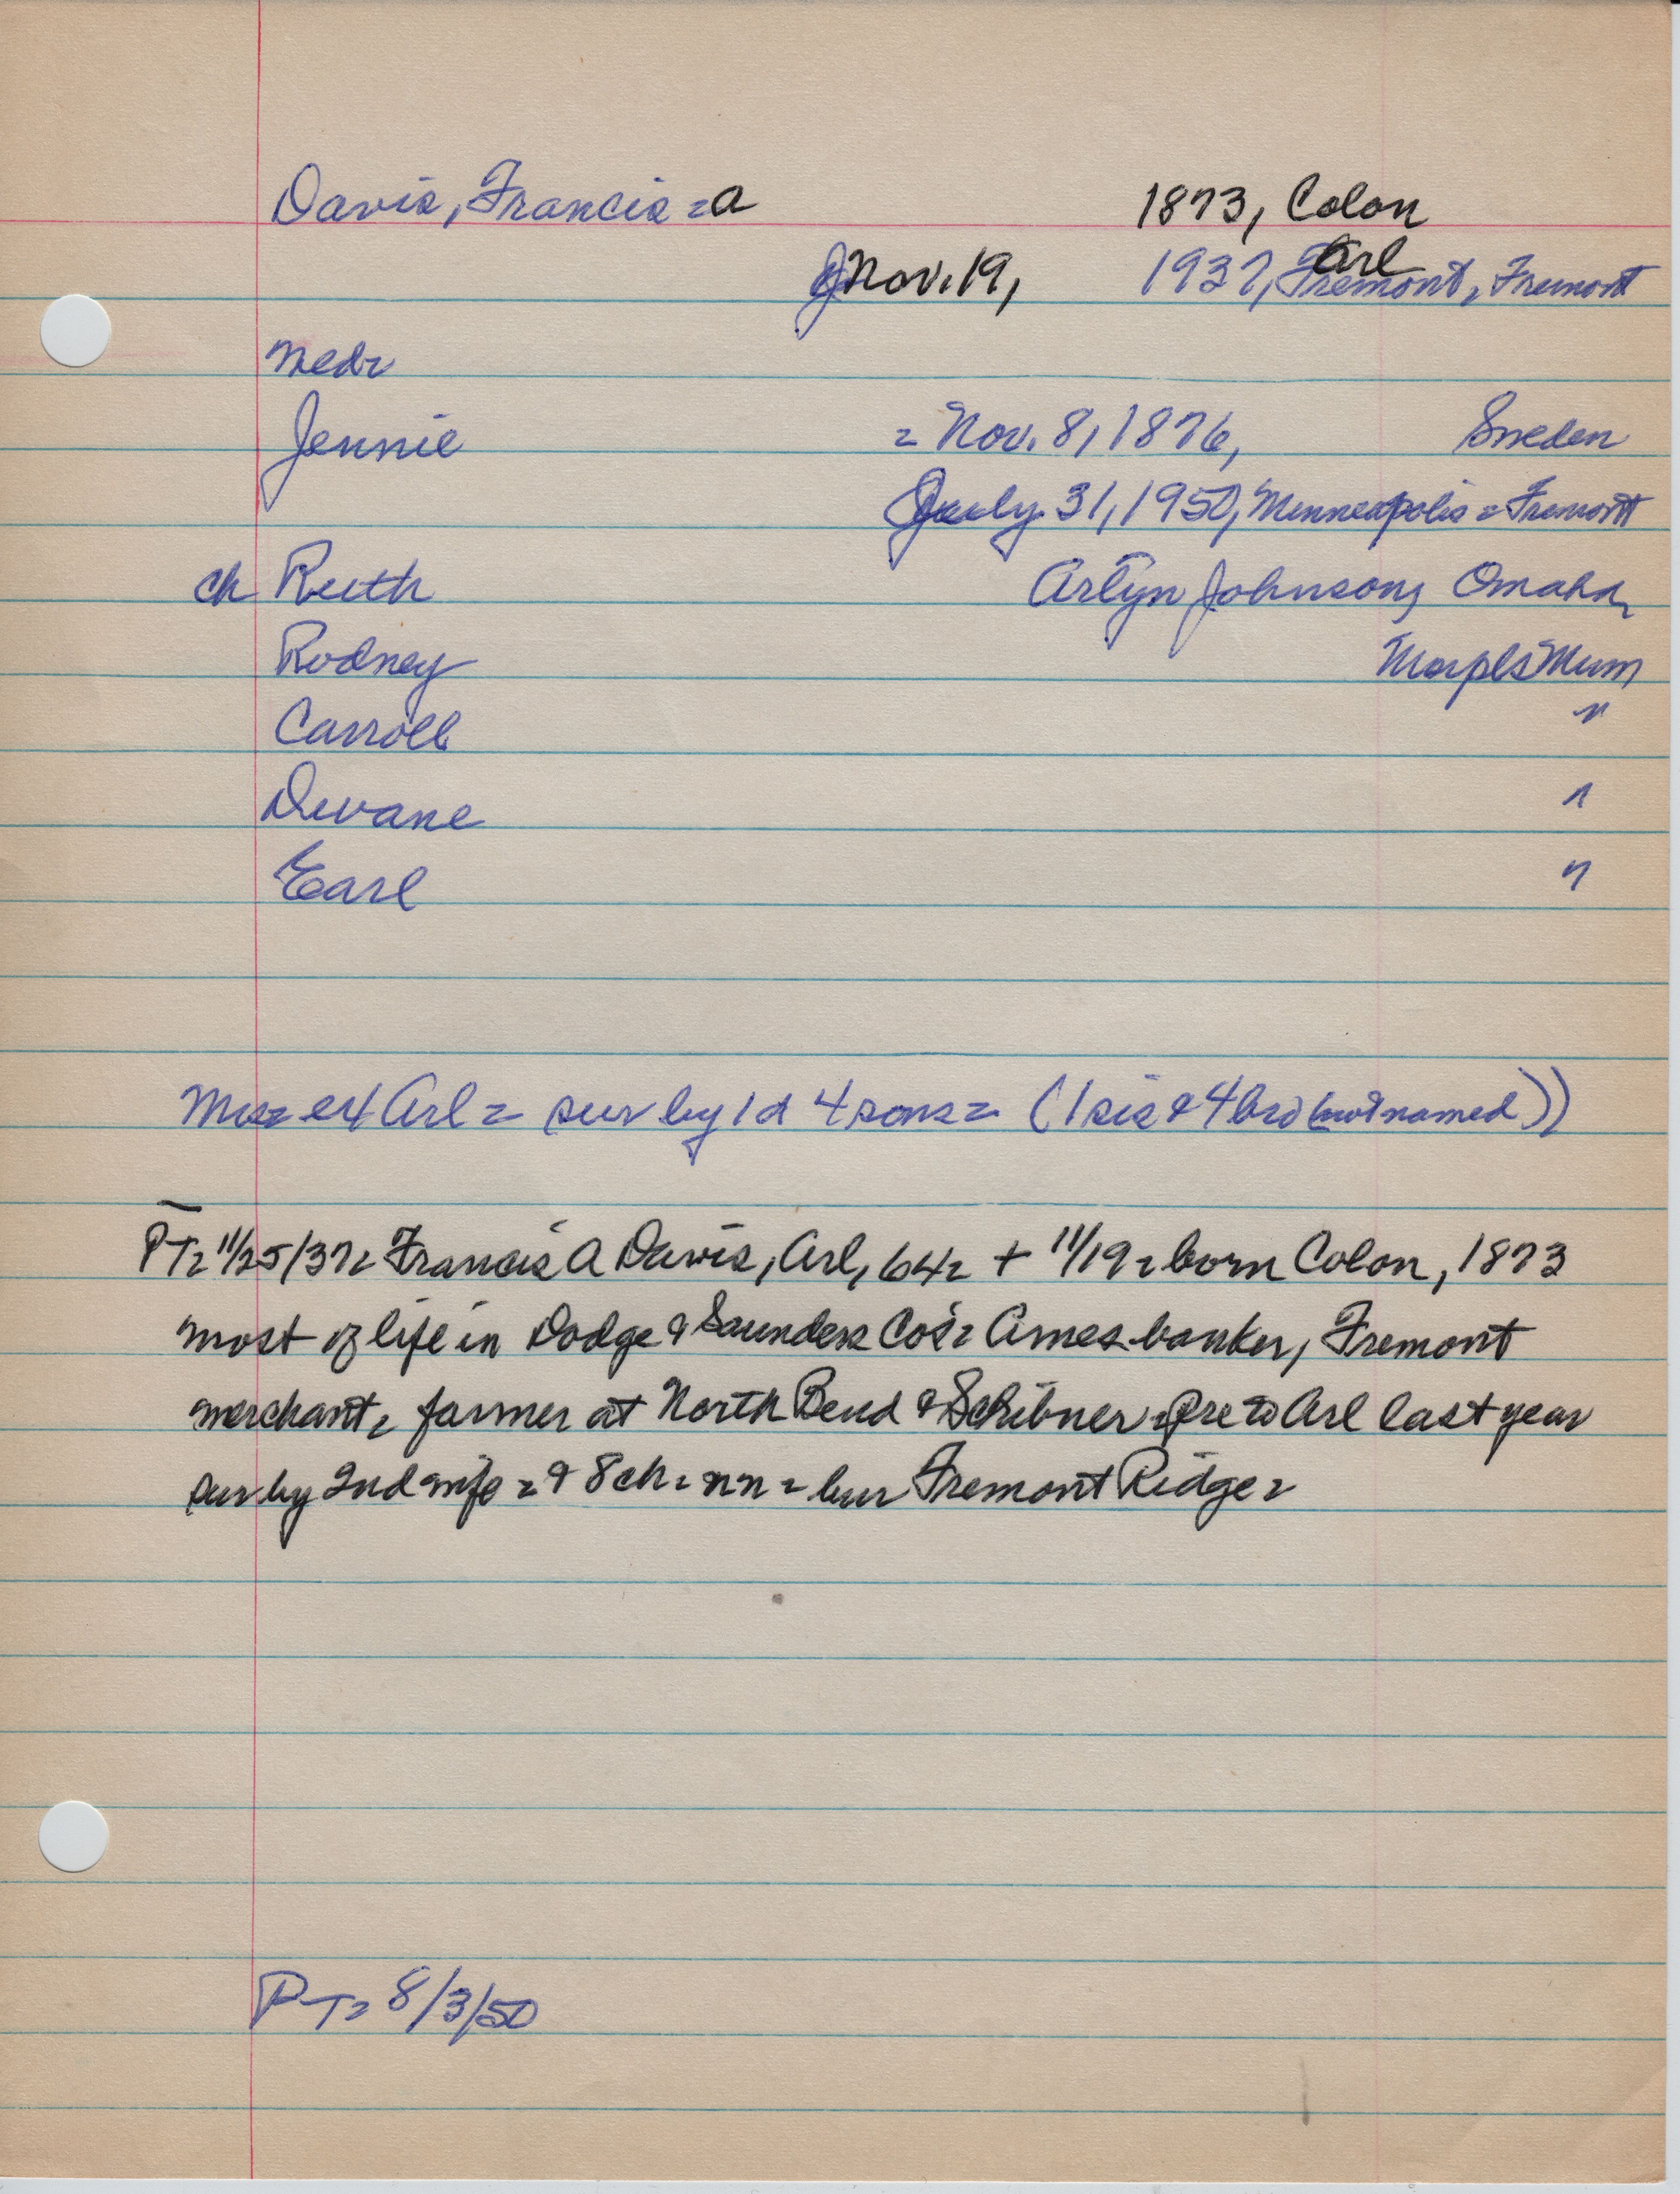 Davis, Francis = A 1873, Colon
Nov. 19, 1937, Arl Fremont, Fremont
Nedr
Jennie = Nov. 8, 1876, Sweden
July 31, 1950, Minneapolis = Fremont
ch Ruth Arlyn Johnson, Omaha
Rodney Mnpls Minn
Carroll "
Duvane "
Earl "
Arl = sur by 1 d 4 sons = (1 sis & 4 bro (not named))
PT = 11/25/37 = Francis A Davis, Arl, 64 = + 11/19 = born Colon, 1873
most of life in Dodge & Saunders Co's = Ames banker, Fremont
merchant, farmer at North Bend & Scribner = to Arl last year
sur by 2nd wife = & 8 ch = nn = bur Fremont Ridge =
PT = 8/3/50